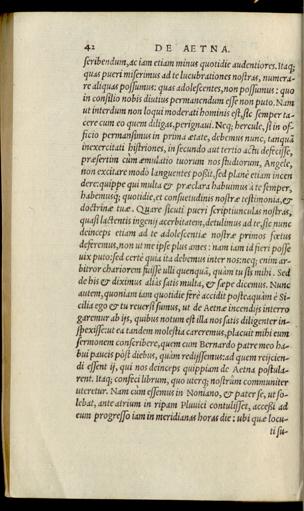 42 DE AETNA.
scribendum, ac iam etiam minus quotidie audentiores. Itaq;
quas pueri miserimus ad te lucubrationes nostras, numera-
re aliquas possumus: quas adolescentes, non possumus: quo
in consilio nobis diutius permanendum esse non puto. Nam
ut interdum non loqui moderati hominis est, sic semper ta-
cere cum eo quem diligas, perignaui. Neq; hercule, si in of-
ficio permansimus in prima ætate, debemus nunc, tanquã
inexercitati histriones, in secundo aut tertio actu defecisse,
præsertim cùm æmulatio tuorum nos studiorum, Angele,
non excitare modo languentes possit, sed planè etiam incen
dere: quippe qui multa & præclara habuimus à te semper,
habemusq; quotidie, et consuetudinis nostræ testimonia, et
doctrinæ tuæ. Quare sicuti pueri scriptiunculas nostras,
quasi lactentis ingenij acerbitatem, detulimus ad te, sic nunc
deinceps etiam ad te adolescentiæ nostræ primos fœtus
deferemus, non ut me ipse plus ames: nam iam id fieri posse
uix puto: sed certè quia ita debemus inter nos: neq; enim ar-
bitror chariorem fuisse ulli quenquã, quàm tu sis mihi. Sed
de his & diximus aliàs satis multa, & sæpe dicemus. Nunc
autem, quoniam iam quotidie ferè accidit postea quàm è Si-
cilia ego & tu reuersi sumus, ut de Aetnæ incendijs interro
garemur ab ijs, quibus notum est illa nos satis diligenter in-
spexisse: ut ea tandem molestia careremus, placuit mihi eum
sermonem conscribere, quem cum Bernardo patre meo ha-
bui paucis pòst diebus, quàm redissemus: ad quem reijcien-
di essent ij, qui nos deinceps quippiam de Aetna postula-
rent. Itaq; confeci librum, quo uterq; nostrûm communiter
uteretur. Nam cùm essemus in Noniano, & pater se, ut so-
lebat, ante atrium in ripam Pluuici contulisset, accessi ad
eum progresso iam in meridianas horas die: ubi quæ locu-
ti su-